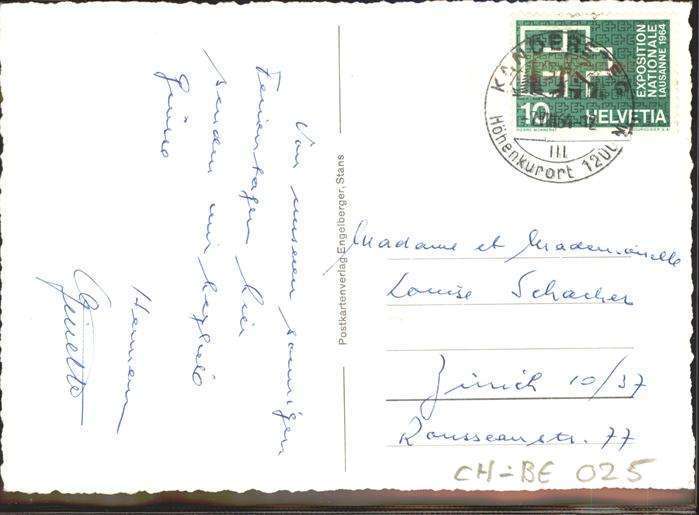 Von unseren sonnigen
Ferientagen hier
senden wir herzlich
Grüsse
Hermann
Ginette
Postkartenverlag Engelberger, Stans
KANDERSTEG
III
Höhenkurort 1200 M
EXPOSITION
NATIONALE
LAUSANNE 1964
10 HELVETIA
Madame et Mademoiselle
Louise Schacher
Zürich 10/37
Rousseaustr. 77
CH-BE 025